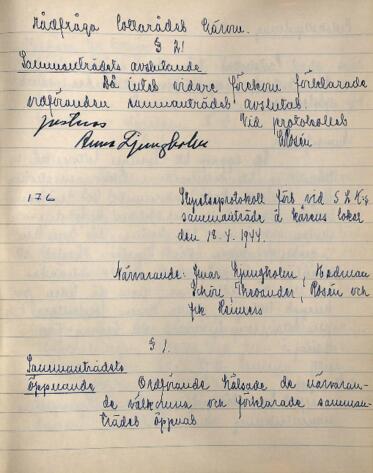 rådfråga Lottarådets kårer.
§ 21
Sammanträdets avslutande
Då intet vidare förekom förklarade
ordföranden sammanträdet avslutat.
Justeras
Vid protokollet
Anna Ljungholm
Rosén
176
Styrelseprotokoll fört vid S.L.K:s
sammanträde å kårens lokal
den 18.4.1944.
Närvarande: Ljungholm,
Schöre, Theander, Rosén och
frk Reimers
§ 1.
Sammanträdets
öppnande
Ordförande hälsade de närvaran-
de välkomna och förklarade samman-
trädet öppnat